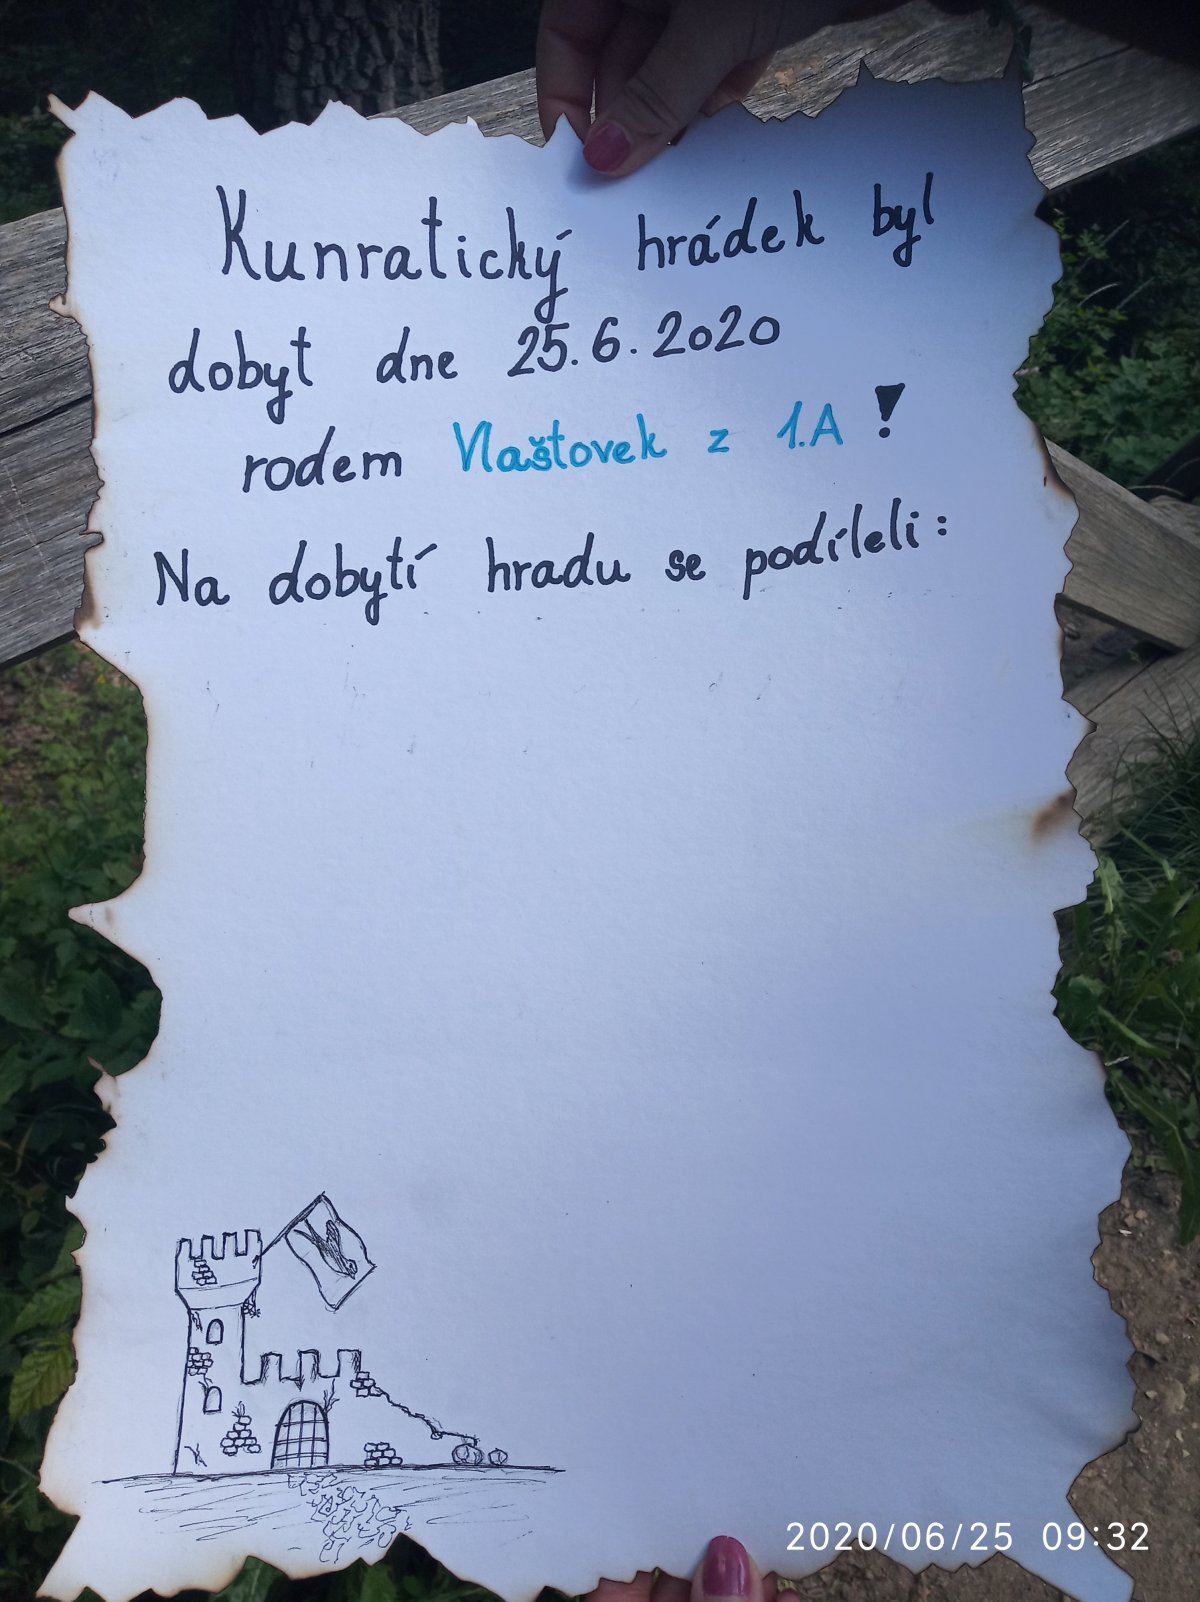 Kunratický hrádek byl
dobyt dne 25.6.2020
rodem Vlaštovek z 1.A!
Na dobytí hradu se podíleli:
2020/06/25 09:32